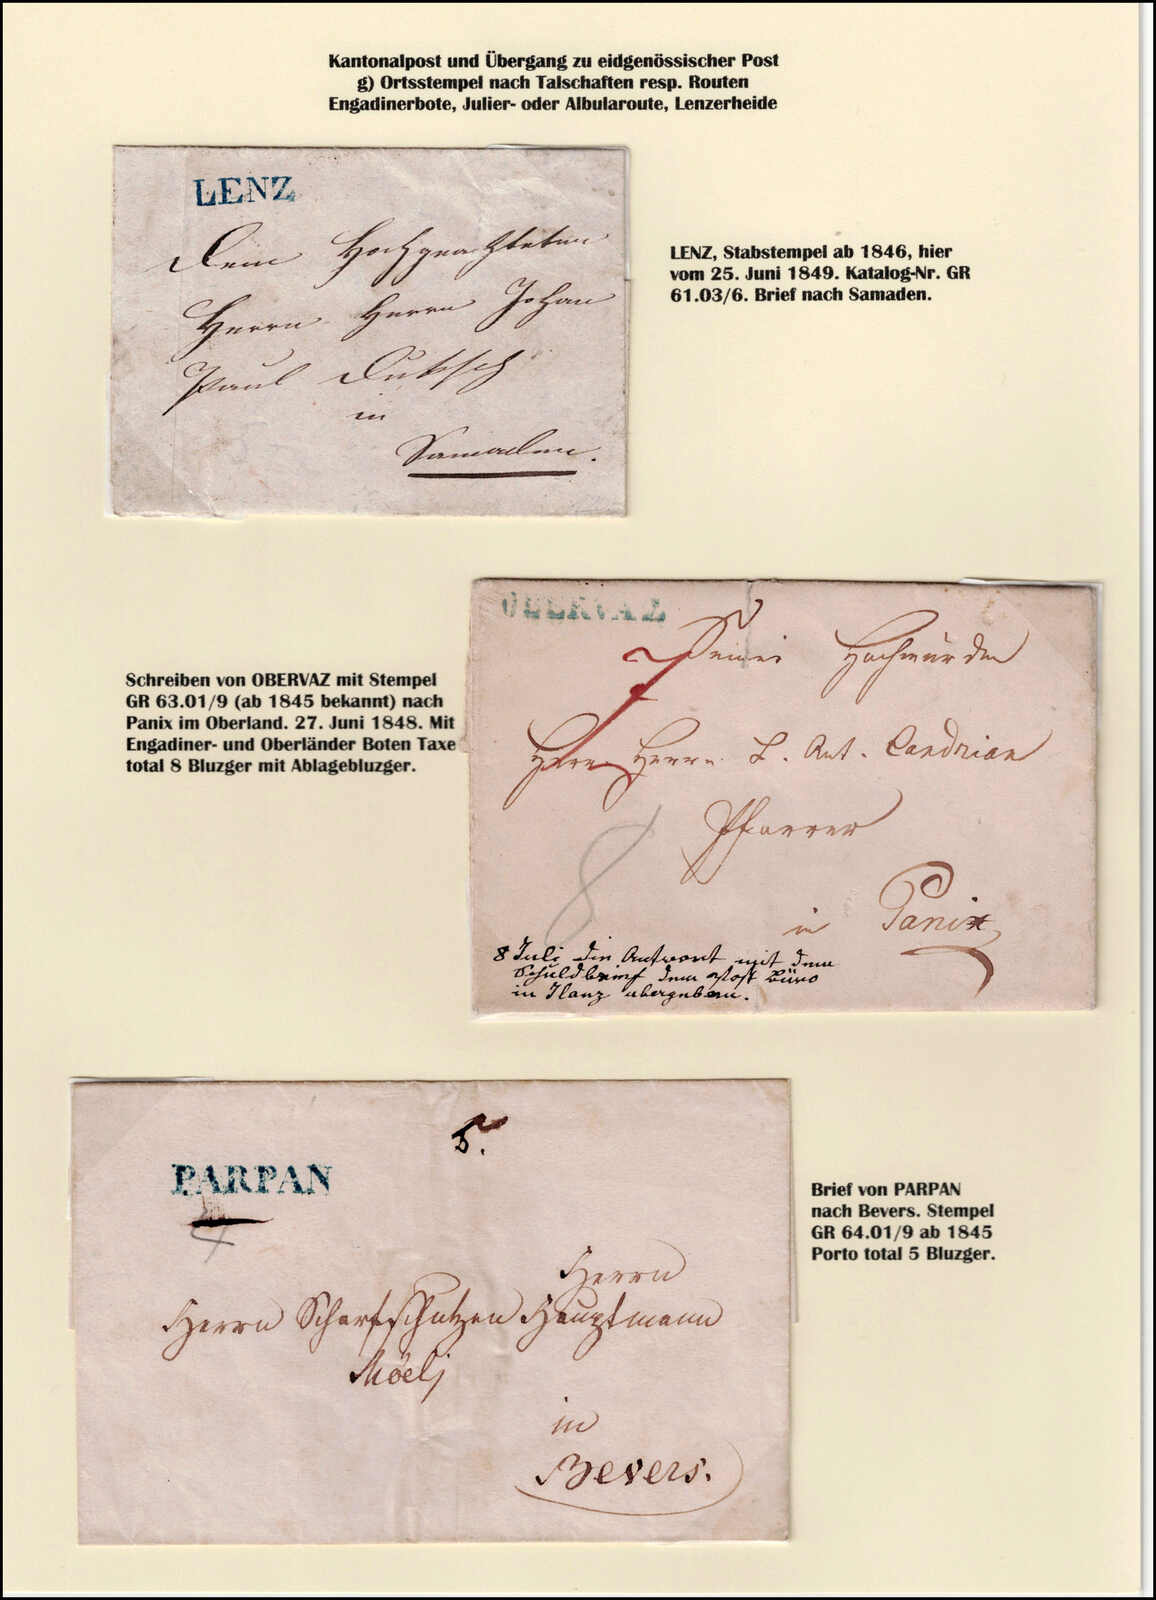 Kantonalpost und Übergang zu eidgenössischer Post
g) Ortsstempel nach Talschaften resp. Routen
Engadinerbote, Julier- oder Albularoute, Lenzerheide
LENZ
Dem Hochgeachteten
Herrn Herrn Johan
Paul
in
Samaden.
LENZ, Stabstempel ab 1846, hier
vom 25. Juni 1849. Katalog-Nr. GR
61.03/6. Brief nach Samaden.
OBERVAZ
Seiner Hochwürden
Herrn Herrn L. Ant. Candrian
Pfarrer
in Panix
8
8 Juli die Antwort mit dem
Schuldbrief dem Post Büro
in Ilanz übergeben.
Schreiben von OBERVAZ mit Stempel
GR 63.01/9 (ab 1845 bekannt) nach
Panix im Oberland. 27. Juni 1848. Mit
Engadiner- und Oberländer Boten Taxe
total 8 Bluzger mit Ablagebluzger.
5.
PARPAN
4
Herrn
Herrn Scharfschützen Hauptmann
in
Bevers.
Brief von PARPAN
nach Bevers. Stempel
GR 64.01/9 ab 1845
Porto total 5 Bluzger.